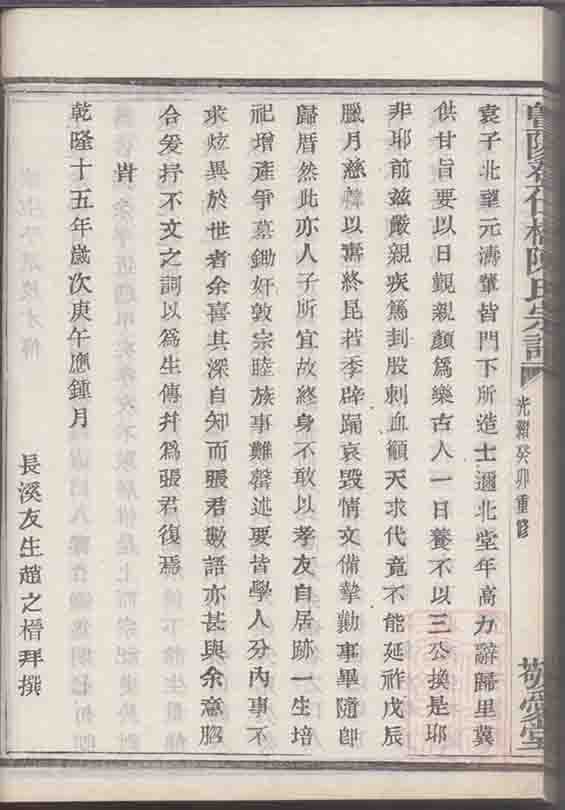 袁子北望元濤輩皆門下所造士邇北堂年高力辭歸里冀
供甘旨要以日觀親顏為樂古人一日養不以三公換是耶
非耶前茲嚴親疾篤刲股刺血籲天求代竟不能延祚戊辰
臘月慈幃以壽終昆若季辟踊哀毀情文備摯勷事畢隨卽
歸厝然此亦人子所宜故終身不敢以孝友自居跡一生培
祀增產爭墓鋤奸敦宗睦族事難罄述要皆學人分內事不
求炫異於世者余喜其深自知而張君數語亦甚與余意脗
合爰抒不文之詞以為生傳幷為張君復焉
旹
乾隆十五年歲次庚午應鍾月
長溪友生趙之榗拜撰
橋陳氏宗譜
光緒癸卯重修
敬愛堂